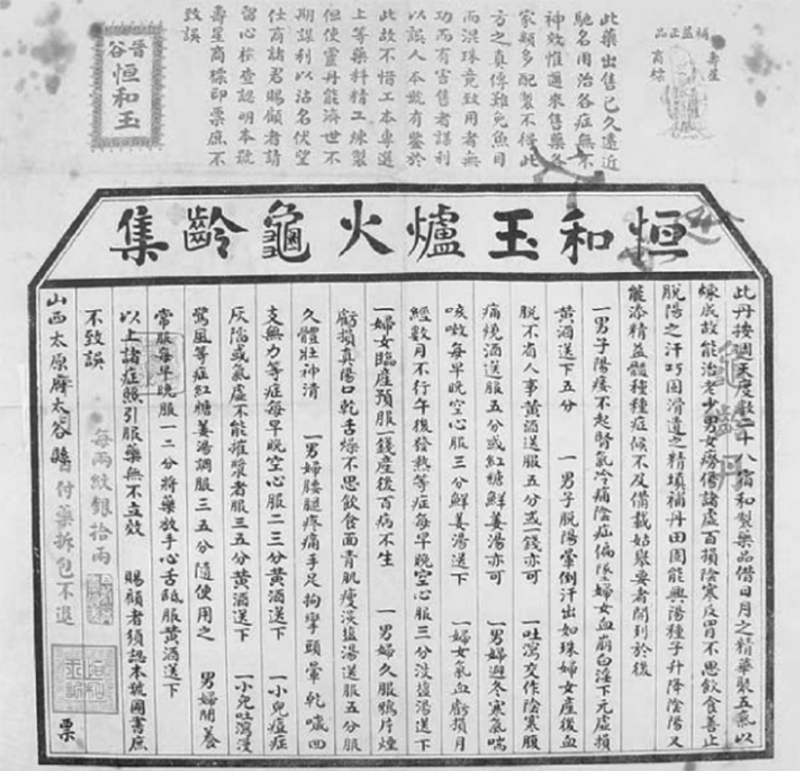 補益正品
壽星
商標
此藥出售已久遠近
馳名用治各症無不
神效惟邇來售藥各
家頗多配製不得此
方之真傳難免魚目
而混珠竟致用者無
功而有害售者謀利
以誤人本號有鑒於
此故不惜工本專選
上等藥料精工煉製
但使靈丹能濟世不
期謀利以沽名伏望
仕商諸君賜顧者請
留心檢查認明本號
壽星商標印票庶不
致誤
晉谷
恒和玉
恒和玉爐火龜齡集
此丹按週天度數二十八宿和製藥品借日月之精華製五氣以
煉成故能治老少男女癆傷諸虛百損陰寒反胃不思飲食善止
脫陽之汗巧固滑遺之精填補丹田固能興陽種子升降陰陽又
能添精益髓種種症候不及備載姑舉要者開列於後
一男子陽痿不起腎氣冷痛陰症偏墜婦女血崩白淫下元虛損
黃酒送下五分　一男子脫陽暈倒汗出如珠婦女產後血
脫不省人事黃酒送服五分或一錢亦可　一吐瀉交作陰寒腹
痛燒酒送服五分或紅糖鮮姜湯亦可　一男婦避冬寒氣喘
咳嗽每早晚空心服三分鮮姜湯送下　一婦女氣血虧損月
經數月不行午後發熱等症每早晚空心服三分淡鹽湯送下
一婦女臨產預服一錢產後百病不生　一男婦久服鴉片煙
虧損真陽口乾舌燥不思飲食面青肌瘦淡鹽湯送服五分服
久體壯神清　一男婦腰腿疼痛手足拘攣頭暈乾嘔四
支無力等症每早晚空心服二三分黃酒送下　一小兒痘症
灰陷或氣虛不能摧漿者服三五分黃酒送下　一小兒吐瀉漫
驚風等症紅糖姜湯調服三五分隨便用之　男婦閒養
常服每早晚服一二分將藥放手心舌舐服黃酒送下
以上諸症照引服藥無不立效　賜顧者須認本號圖書庶
不致誤
每兩紋銀拾兩
山西太原府太谷縣
付藥拆包不退
票